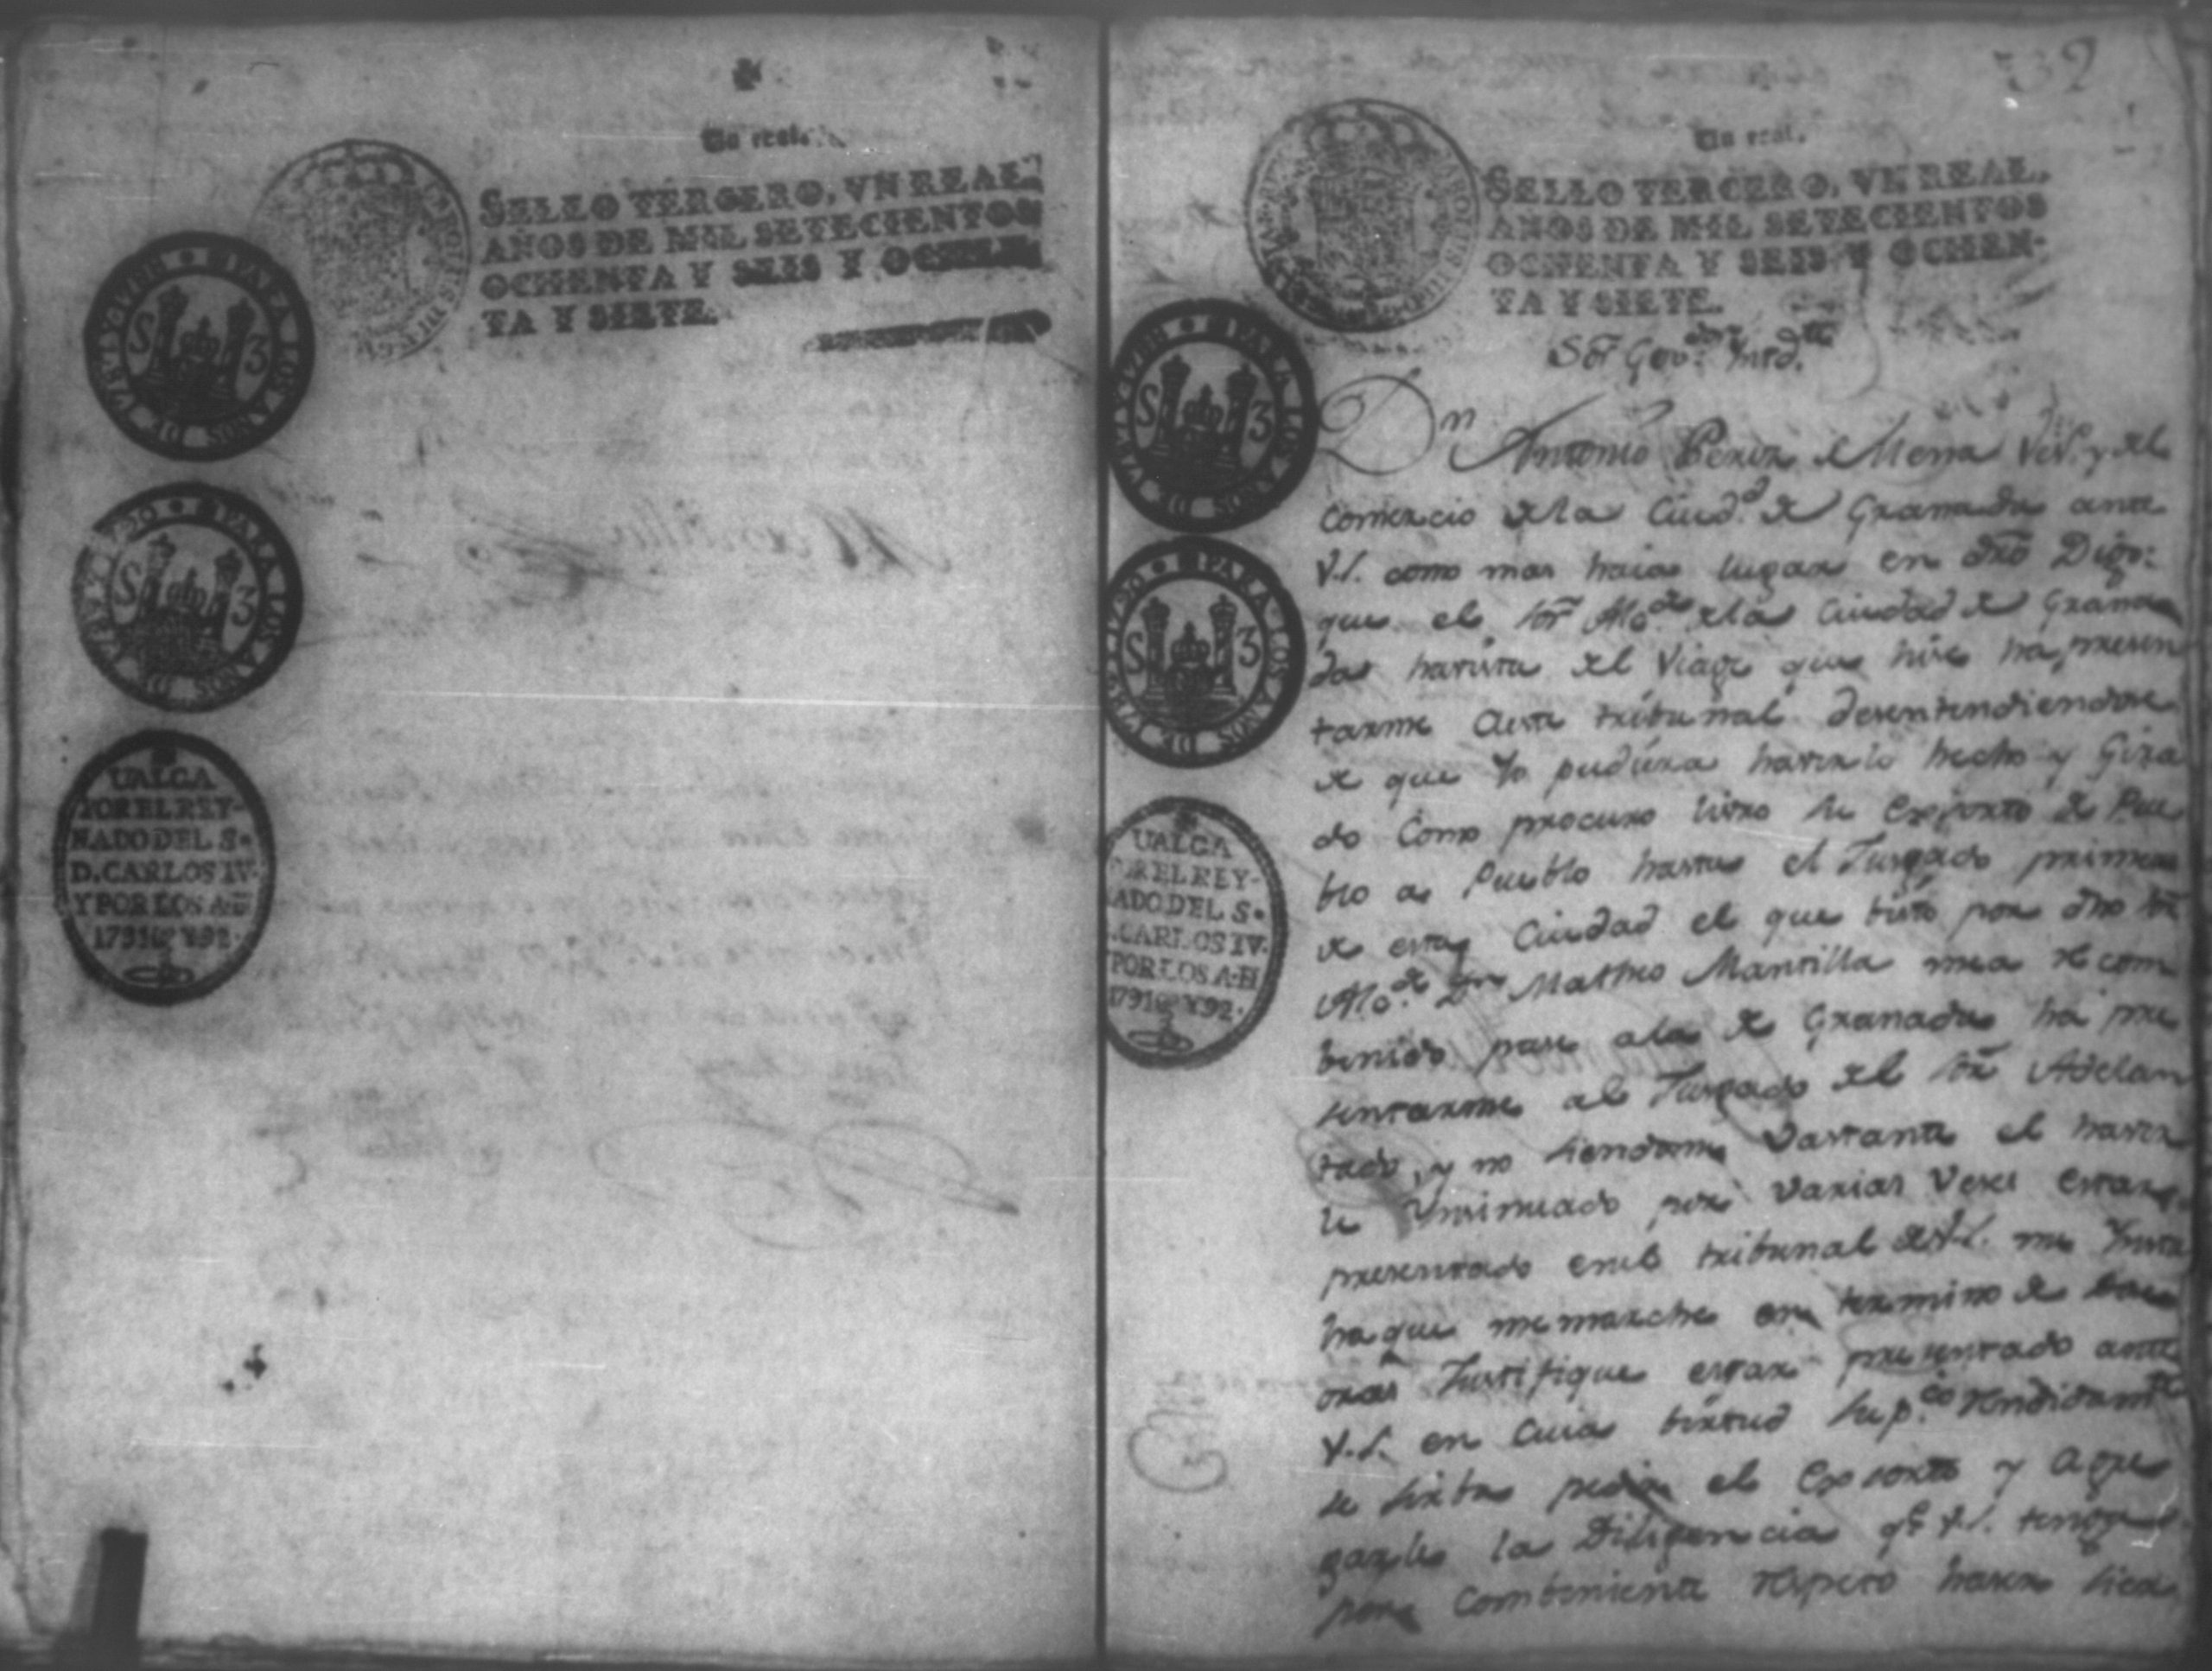 Un real.
SELLO TERCERO, VN REAL,
AÑOS DE MIL SETECIENTOS
OCHENTA Y SEIS Y OCHEN
TA Y SIETE.
PARA LOS AÑOS DE
S 3
PARA LOS AÑOS DE
S 3
UALGA
POR EL REY-
NADO DEL S.
D. CARLOS IV.
Y POR LOS A. D
1791 Y 92.
132
Un real.
SELLO TERCERO, VN REAL,
AÑOS DE MIL SETECIENTOS
OCHENTA Y SEIS Y OCHEN-
TA Y SIETE.
PARA LOS AÑOS DE
S 3
PARA LOS AÑOS DE 1790
S 3
UALGA
POR EL REY-
NADO DEL S.
D. CARLOS IV.
POR LOS A. D
1791 Y 92.
Sor. Govor. Intdte
Dn Antonio Perez de Mena Veco. y del
comercio de la Ciudd. de Granada ante
V.S. como mas haia lugar en dro Digo:
que el sor Alcde de la Ciudad de Grana
da del Viage que hise ha presen
tarme a este tribunal desentendiendose
de que Yo pudiera haverlo hecho y Gira
do Como procuro livro su Exsorto de Pue
blo a Pueblo hasta el Jusgado primero
de esta Ciudad el que visto por dho sor
Alcde Dn Matheo Mantilla me a recom
benido pase a la de Granada ha pre
sentarme al Jusgado del sor Adelan
tado, y no siendome vastante el haver
le Ynsinuado por varias veses estar
presentado en el tribunal de V.S. me Ynsta
ha que me marche o en termino de
oras Justifique estar presentado ante
V.S. en cuia birtud supco rendidamte
se sirba pedir el Exsorto y agre
garle la Diligencia qe V.S. tenga
por combeniente respeto haver sido